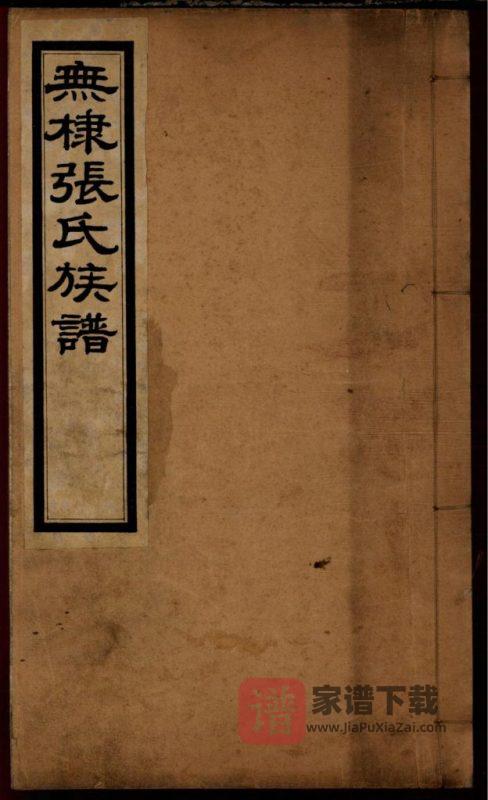 無棣張氏族譜
谱
家谱下载
www.JiaPuXiaZai.com